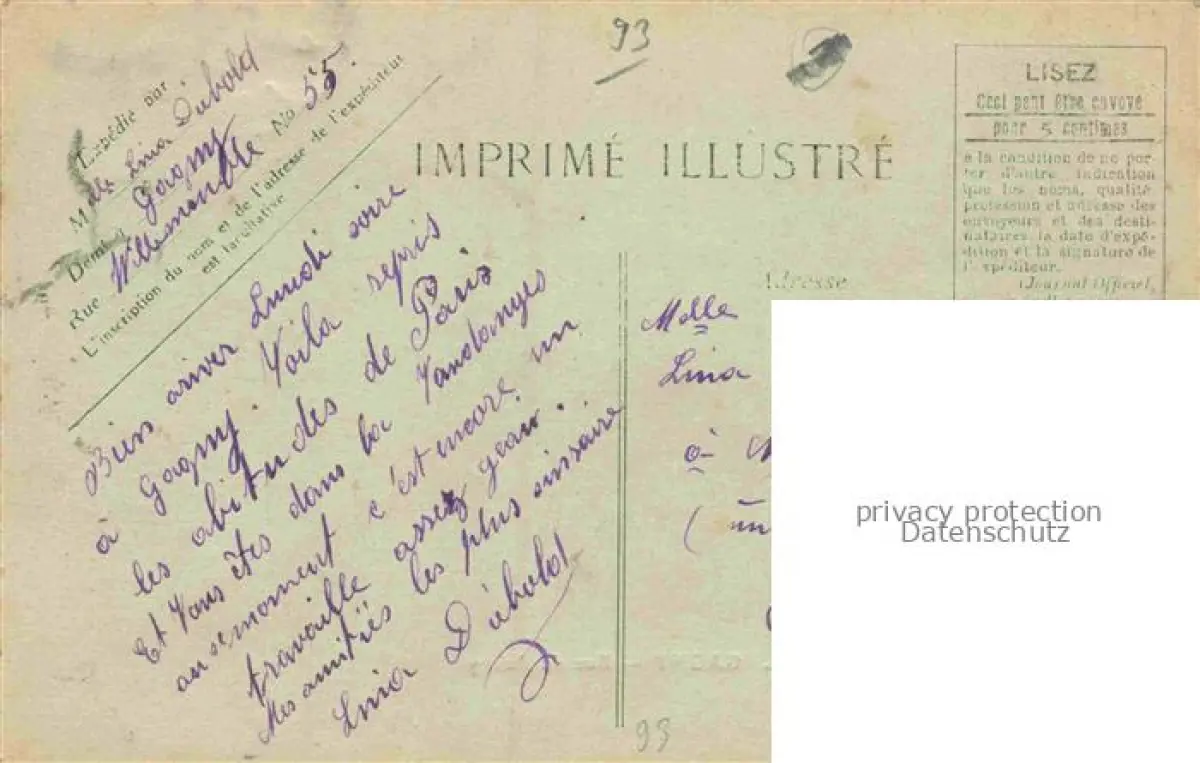 93
Expédié par
Mlle Lina Diebold
Demeurant Gagny
Rue Villemomble No 55.
L'inscription du nom et de l'adresse de l'expéditeur
est facultative
IMPRIMÉ ILLUSTRÉ
LISEZ
Ceci peut être envoyé
pour 5 centimes
à la condition de ne por-
ter d'autre indication
que les noms, qualité
profession et adresse des
envoyeurs et des desti-
nataires la date d'expé-
dition et la signature de
l'expéditeur.
(Journal Officiel,
Bien ariver Lundi soire
à Gagny. Voila repris
les abitudes de Paris
Et Vous êtes dans la Vandanges
au se moment c'est encore un
travaille assez
Mes amitiés les plus sinsaire
Lina Diebold
Adresse
Melle
Lina
à
(un
privacy protection
Datenschutz
93